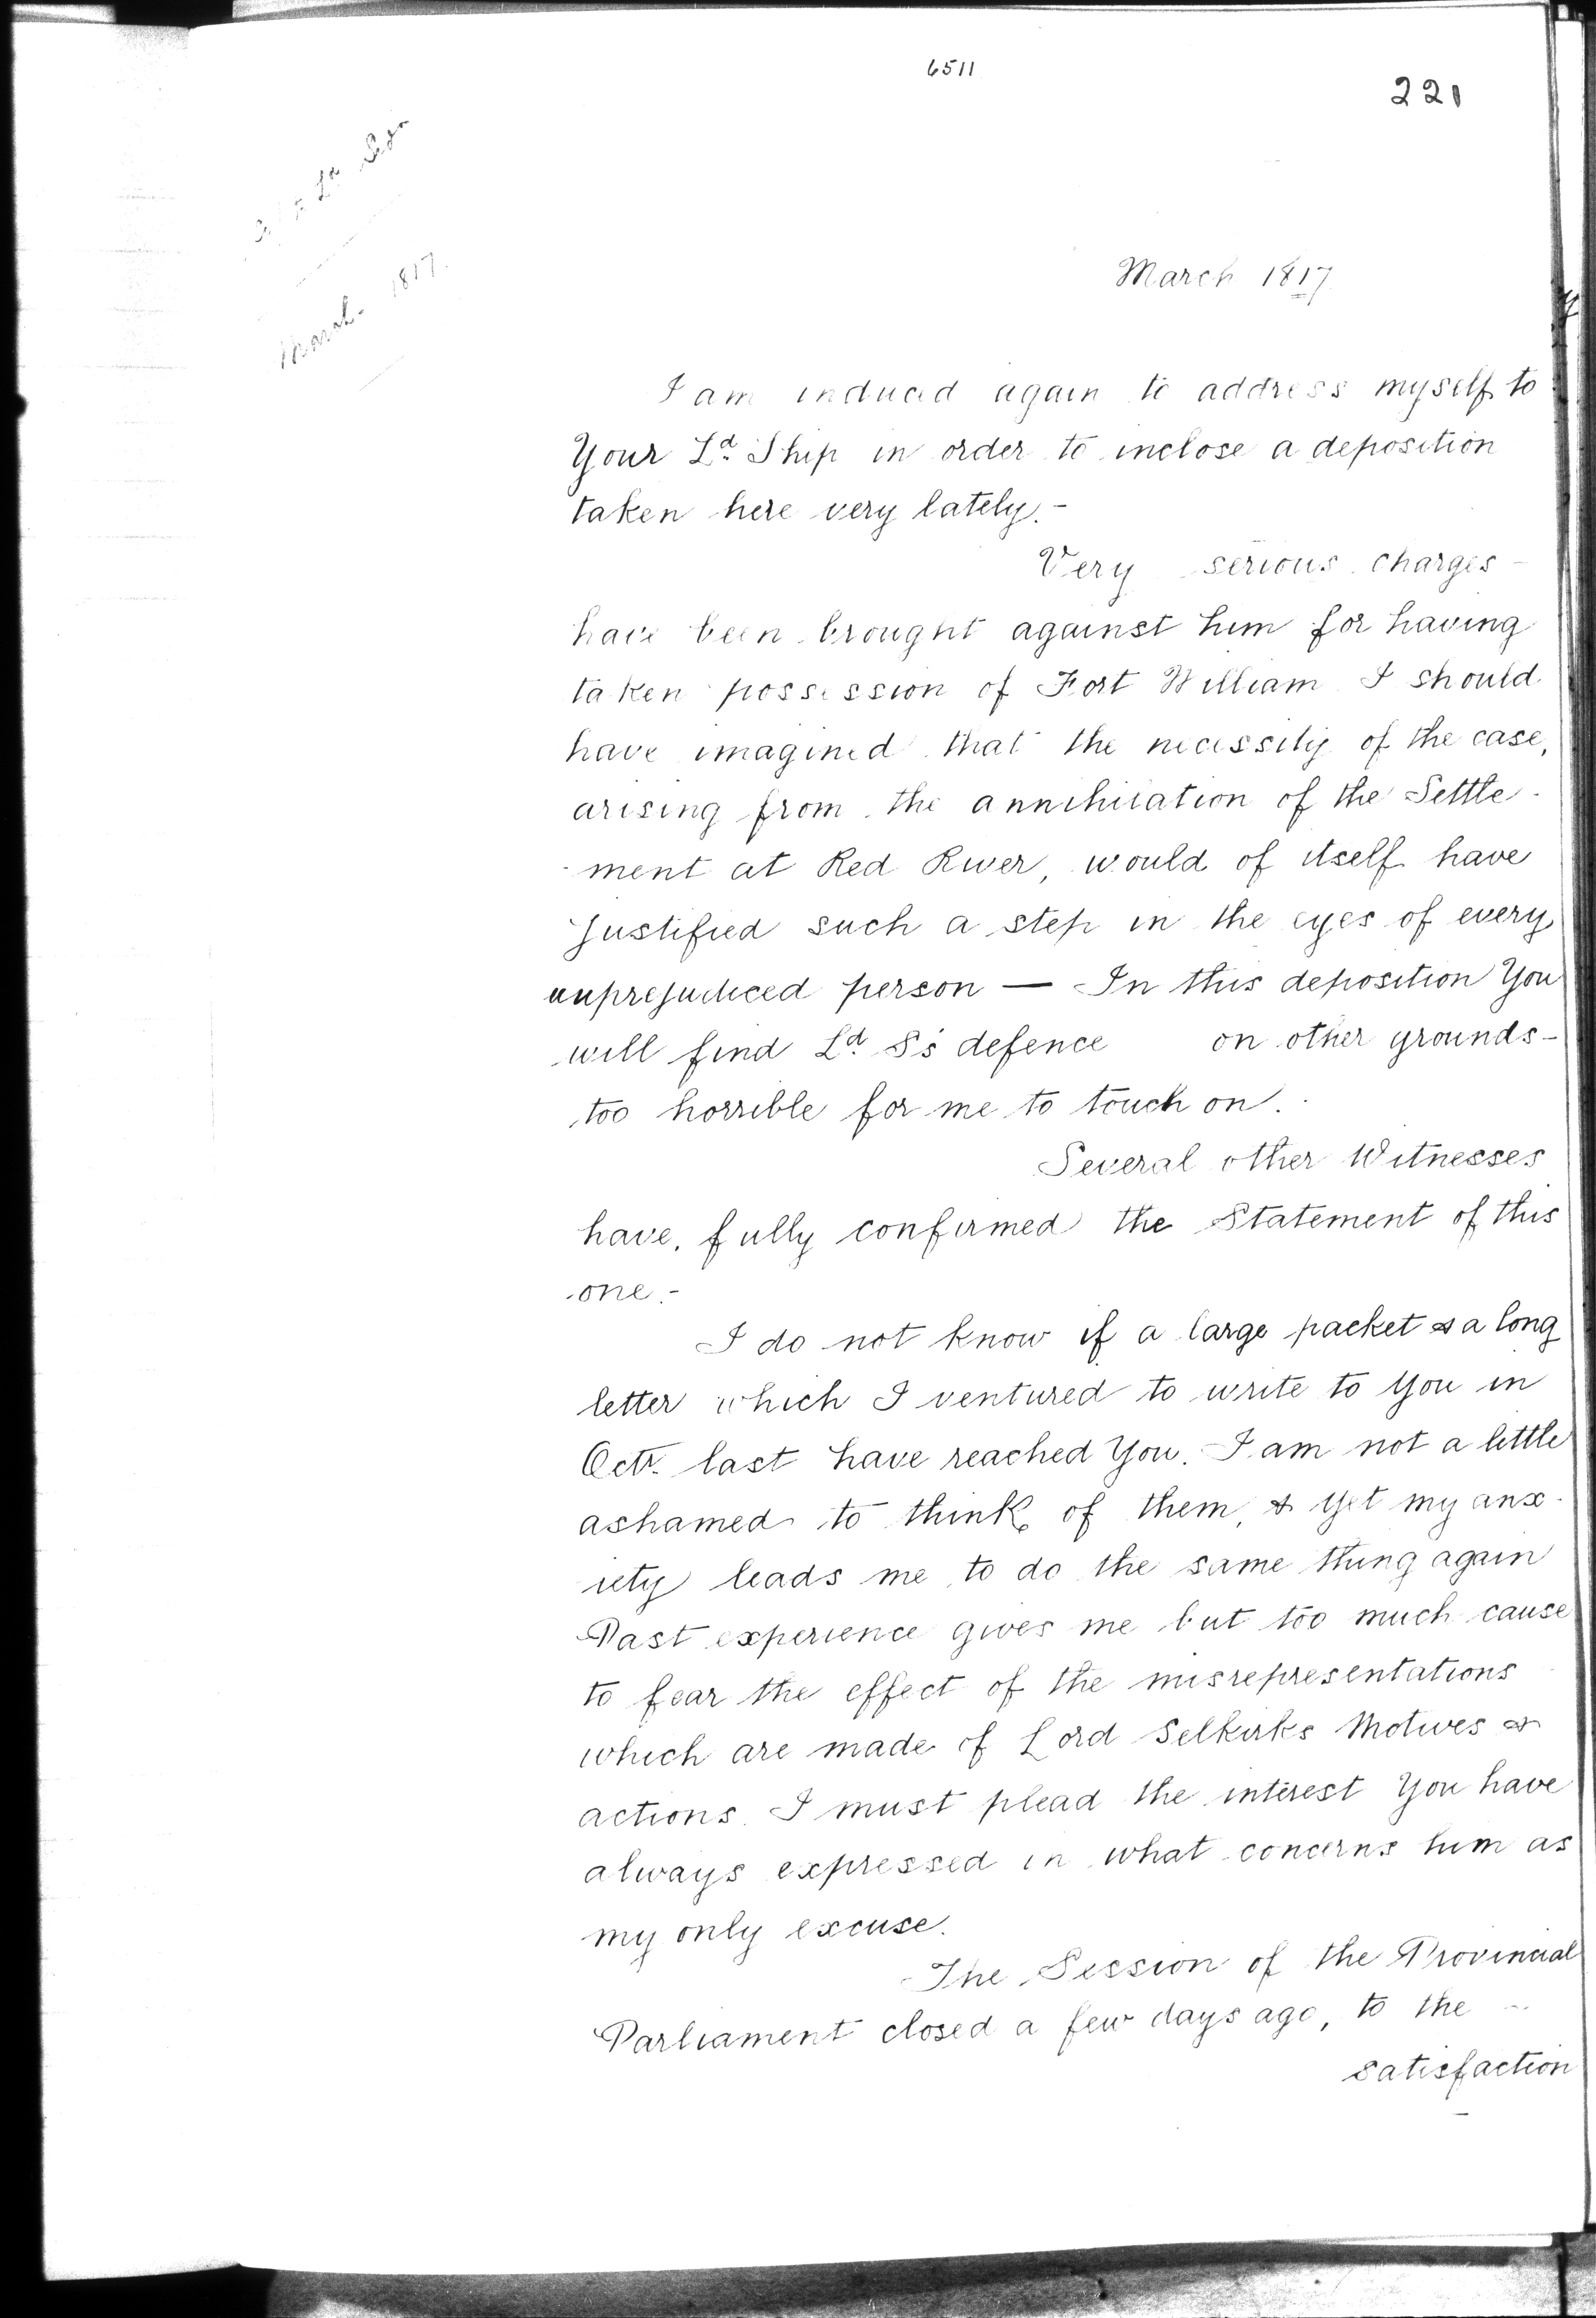 6511
221
March 1817
March 1817.
I am induced again to address myself to
Your Ld. Ship in order to inclose a deposition
taken here very lately.-
Very serious charges -
have been brought against him for having
taken possession of Fort William I should
have imagined that the necessity of the case,
arising from the annihilation of the Settle-
-ment at Red River, would of itself have
justified such a step in the eyes of every
unprejudiced person — In this deposition You
will find Ld. S's defence on other grounds -
too horrible for me to touch on.
Several other Witnesses
have, fully confirmed the Statement of this
one.-
I do not know if a large packet & a long
letter which I ventured to write to You in
Octr. last have reached You. I am not a little
ashamed to think of them, & yet my anx-
iety leads me to do the same thing again
Past experience gives me but too much cause
to fear the effect of the misrepresentations
which are made of Lord Selkirks Motives &
actions. I must plead the interest You have
always expressed in what concerns him as
my only excuse.
The Session of the Provincial
Parliament closed a few days ago, to the -
satisfaction